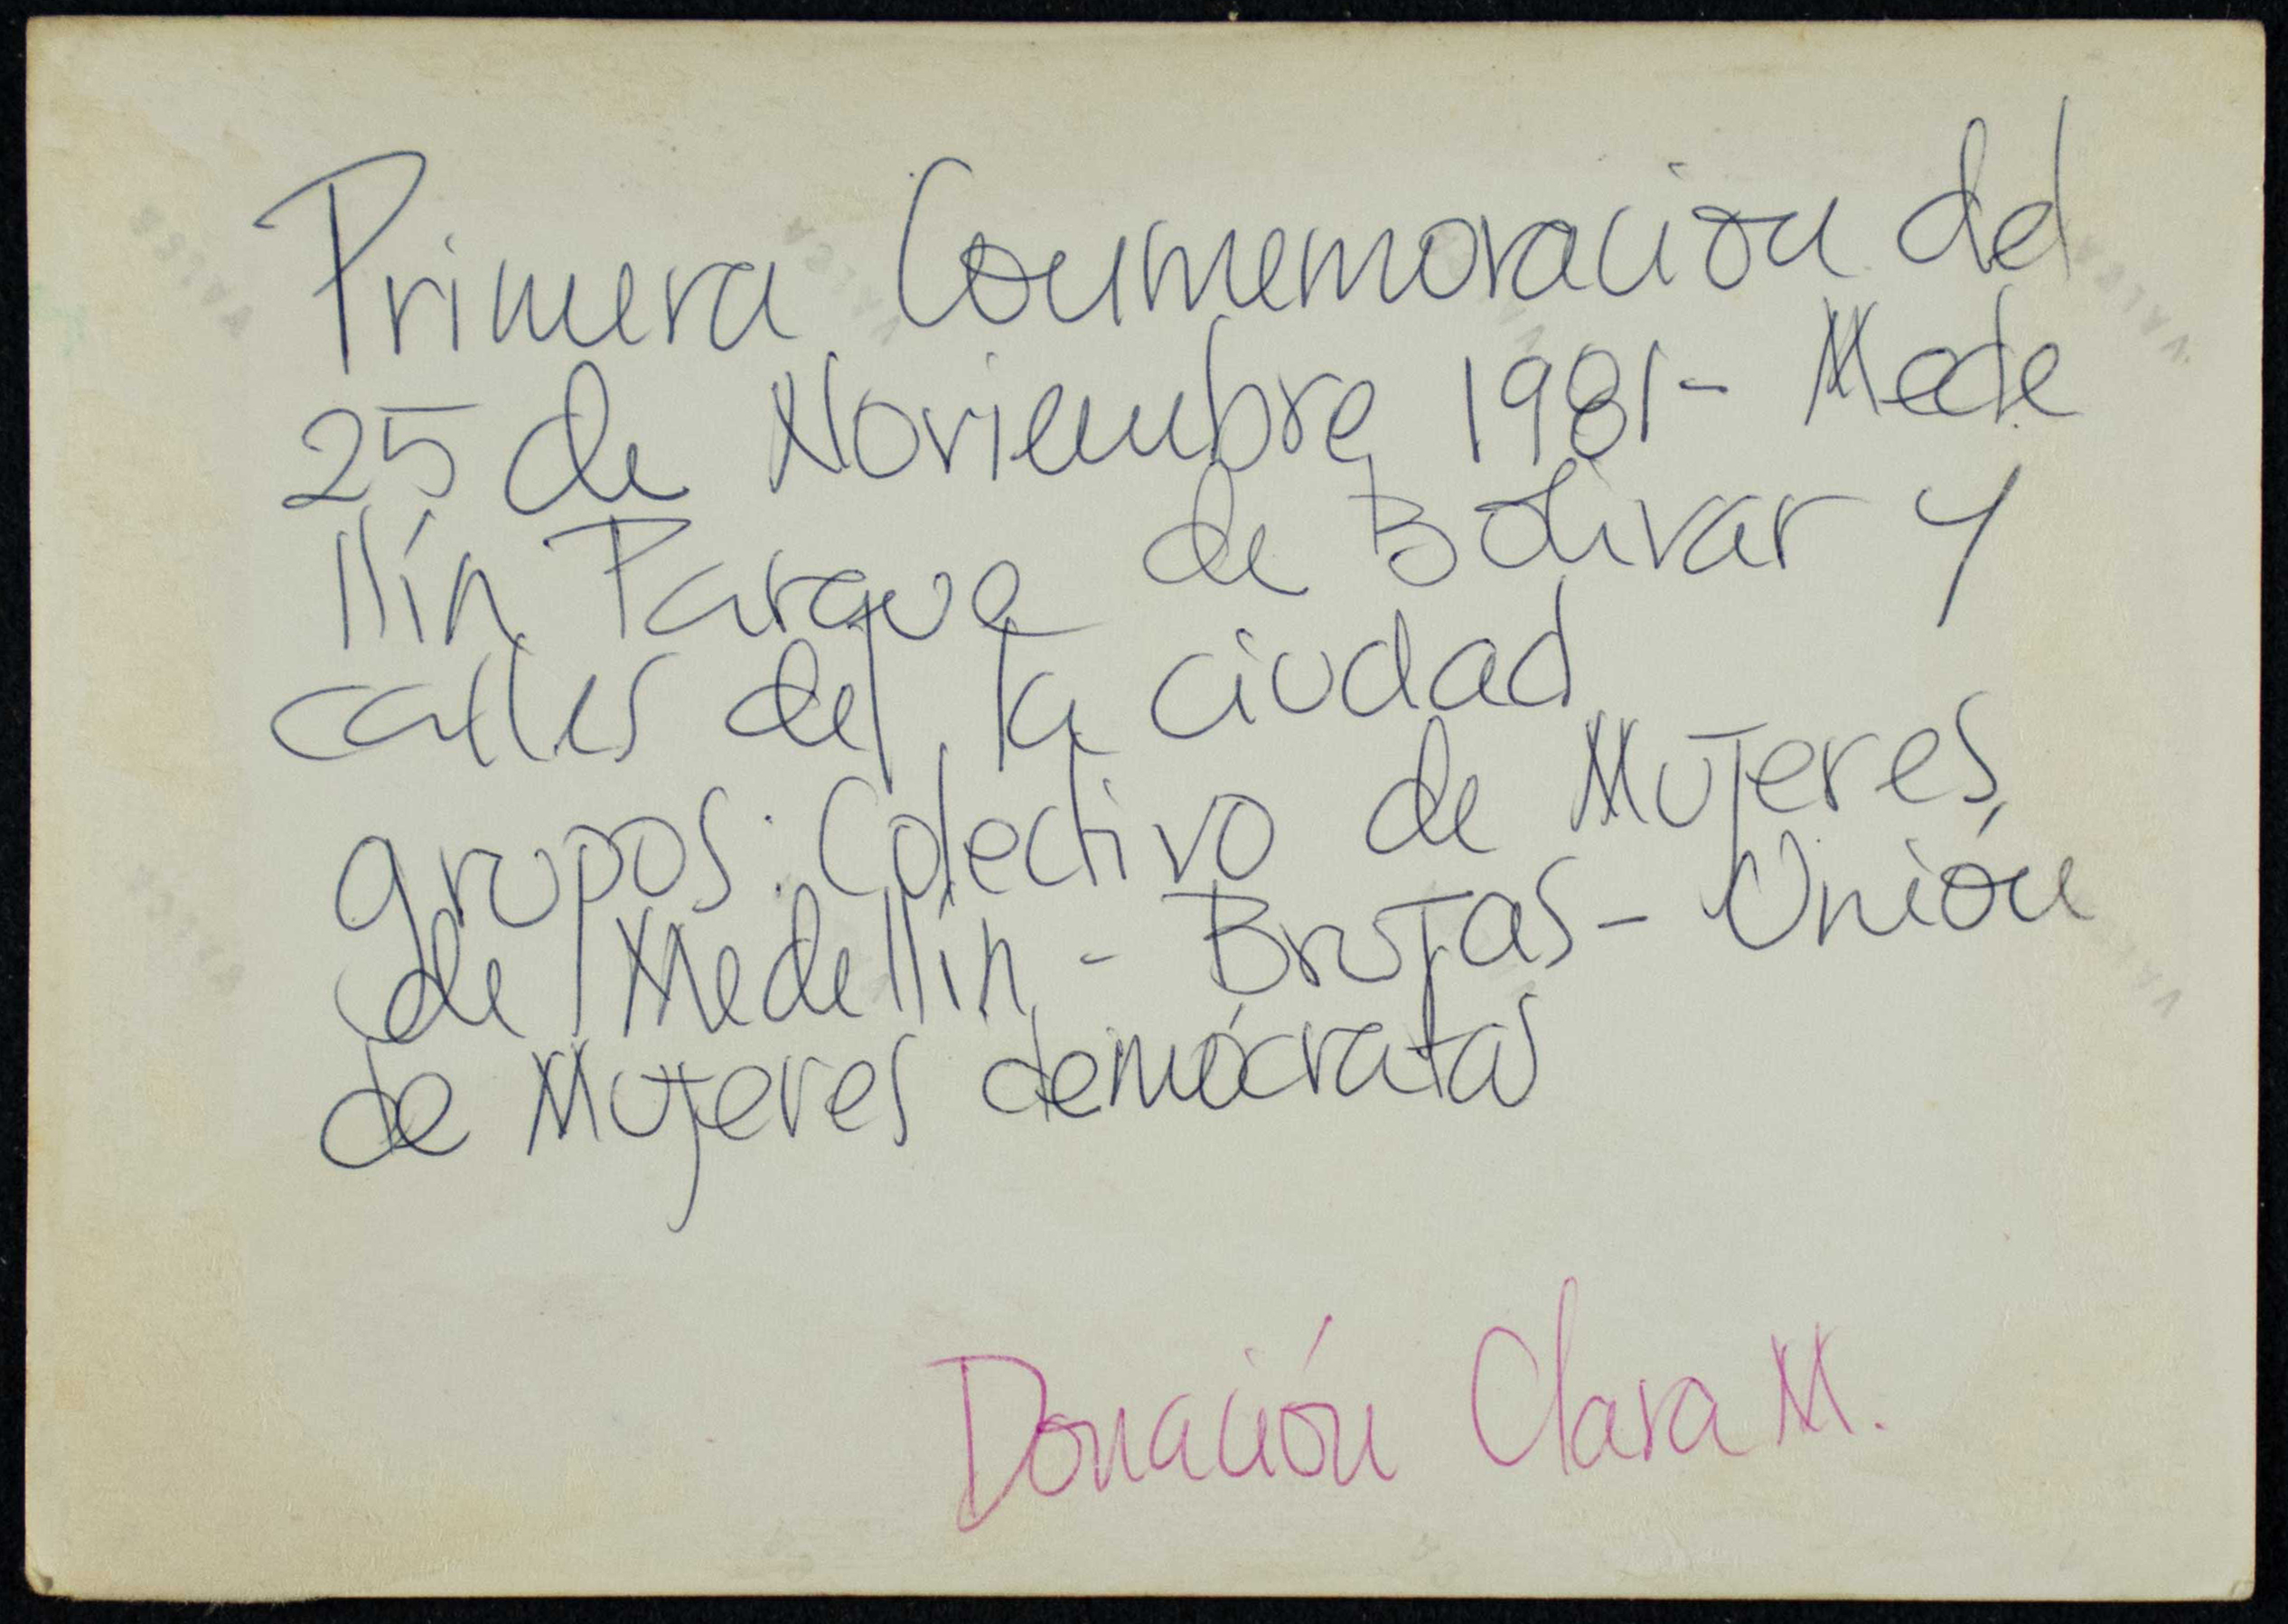 Primera Conmemoración del
25 de Noviembre 1981- Mede
llín Parque de Bolívar y
calles de la ciudad
grupos: Colectivo de Mujeres
de Medellín - Brujas - Unión
de Mujeres demócratas
Donación Clara M.